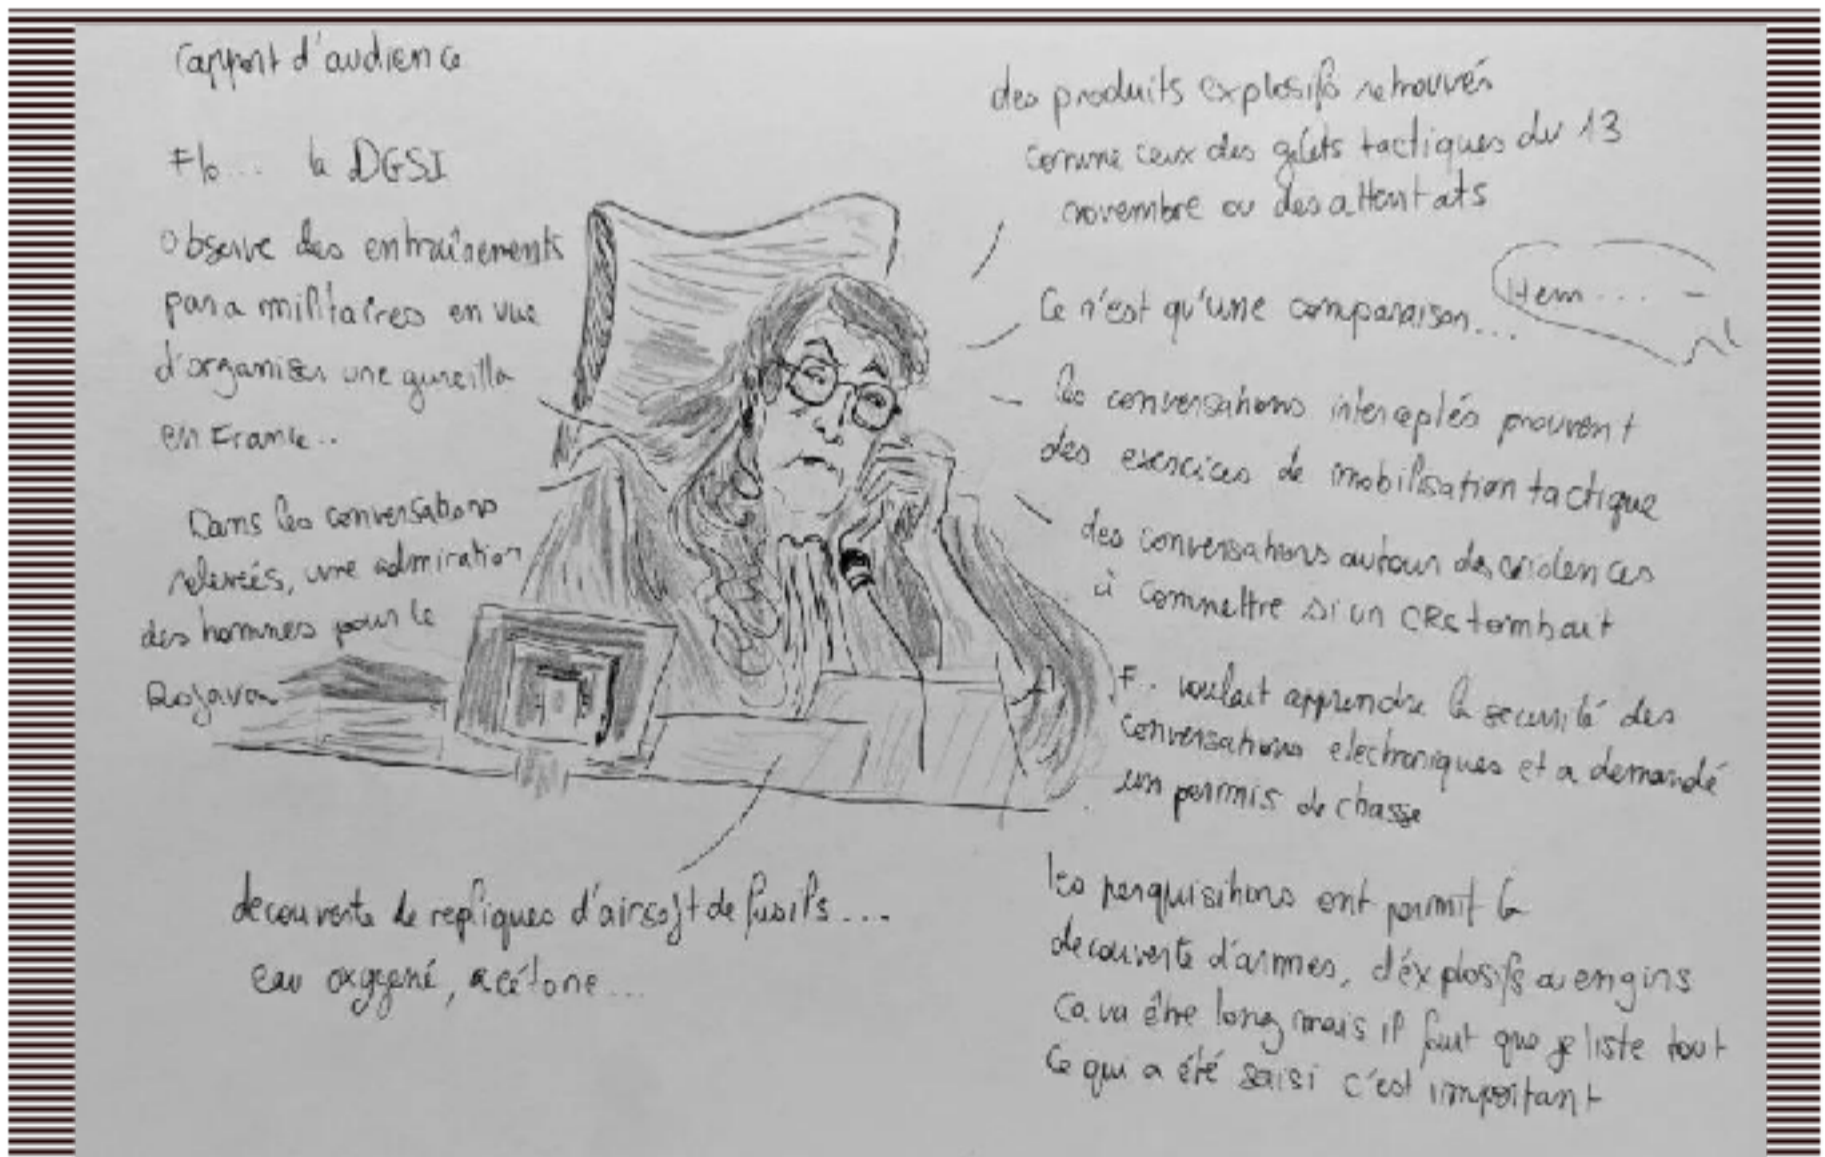 rapport d'audience
Flo... la DGSI
observe des entraînements
para militaires en vue
d'organiser une gureilla
en France..
Dans les conversations
relevées, une admiration
des hommes pour le
Rojava
decouverte de repliques d'airsoft de fusils....
eau oxygené, acétone...
des produits explosifs retrouvés
comme ceux des gilets tactiques du 13
novembre ou des attentats
Hem...
Ce n'est qu'une comparaison...
les conversations interceptés prouvent
des exercices de imobilisation tactique
des conversations autour des violences
à commettre si un CRS tombait
F.. voulait apprendre la securité des
conversations electroniques et a demandé
un permis de chasse
les perquisitions ont permit la
decouverte d'armes, d'éxplosifs ou engins
Ca va être long mais il faut que je liste tout
ce qui a été saisi c'est important